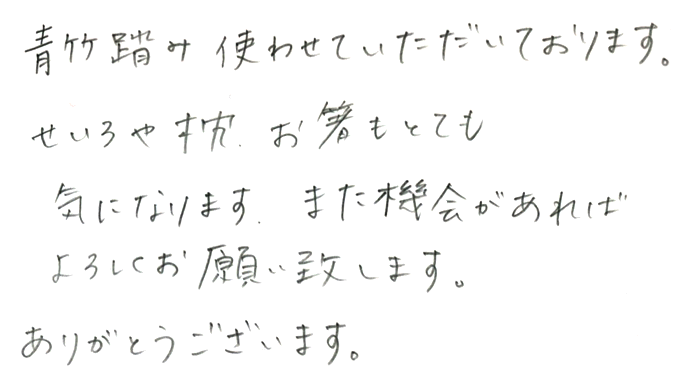 青竹踏み使わせていただいております。
せいろや枕、お箸もとても
気になります。また機会があれば
よろしくお願い致します。
ありがとうございます。